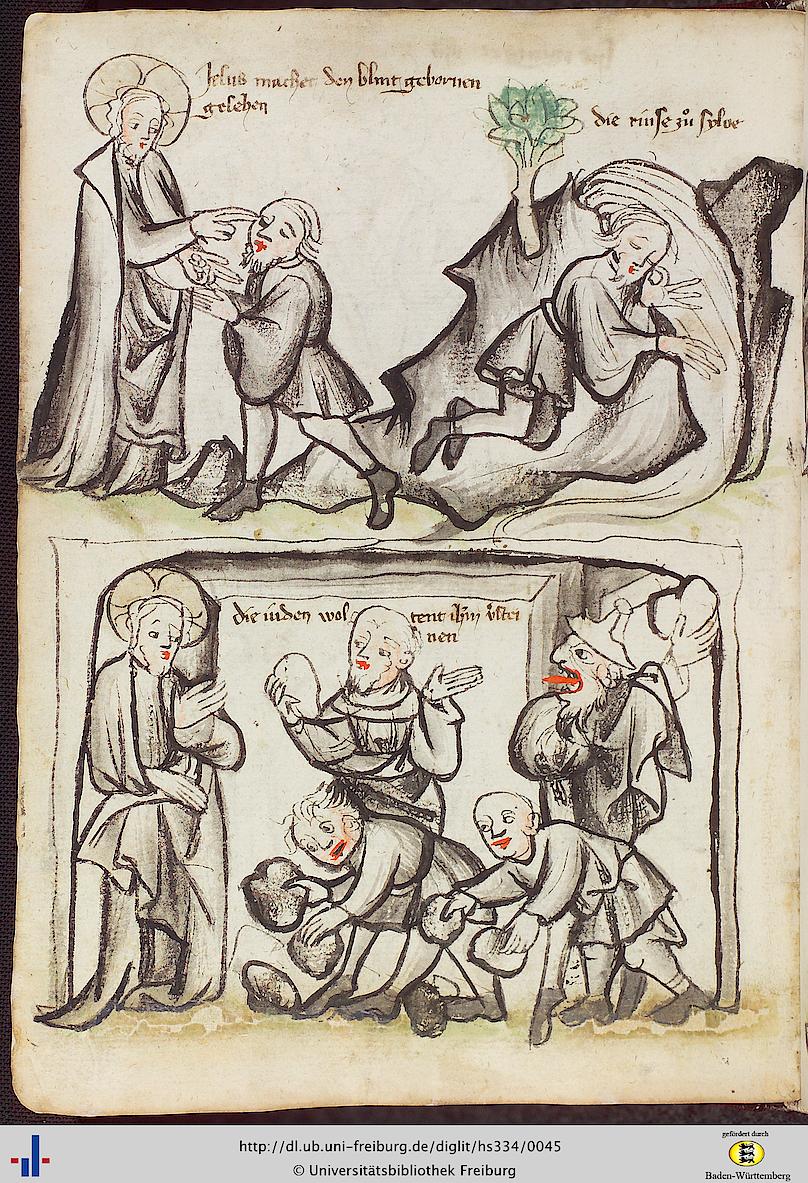 Jesus machet den blint gebornen
gesehen
die rinse zů syloe
die iuden wol tent ihn v̊stei
nen
http://dl.ub.uni-freiburg.de/diglit/hs334/0045
© Universitätsbibliothek Freiburg
gefördert durch
Baden-Württemberg